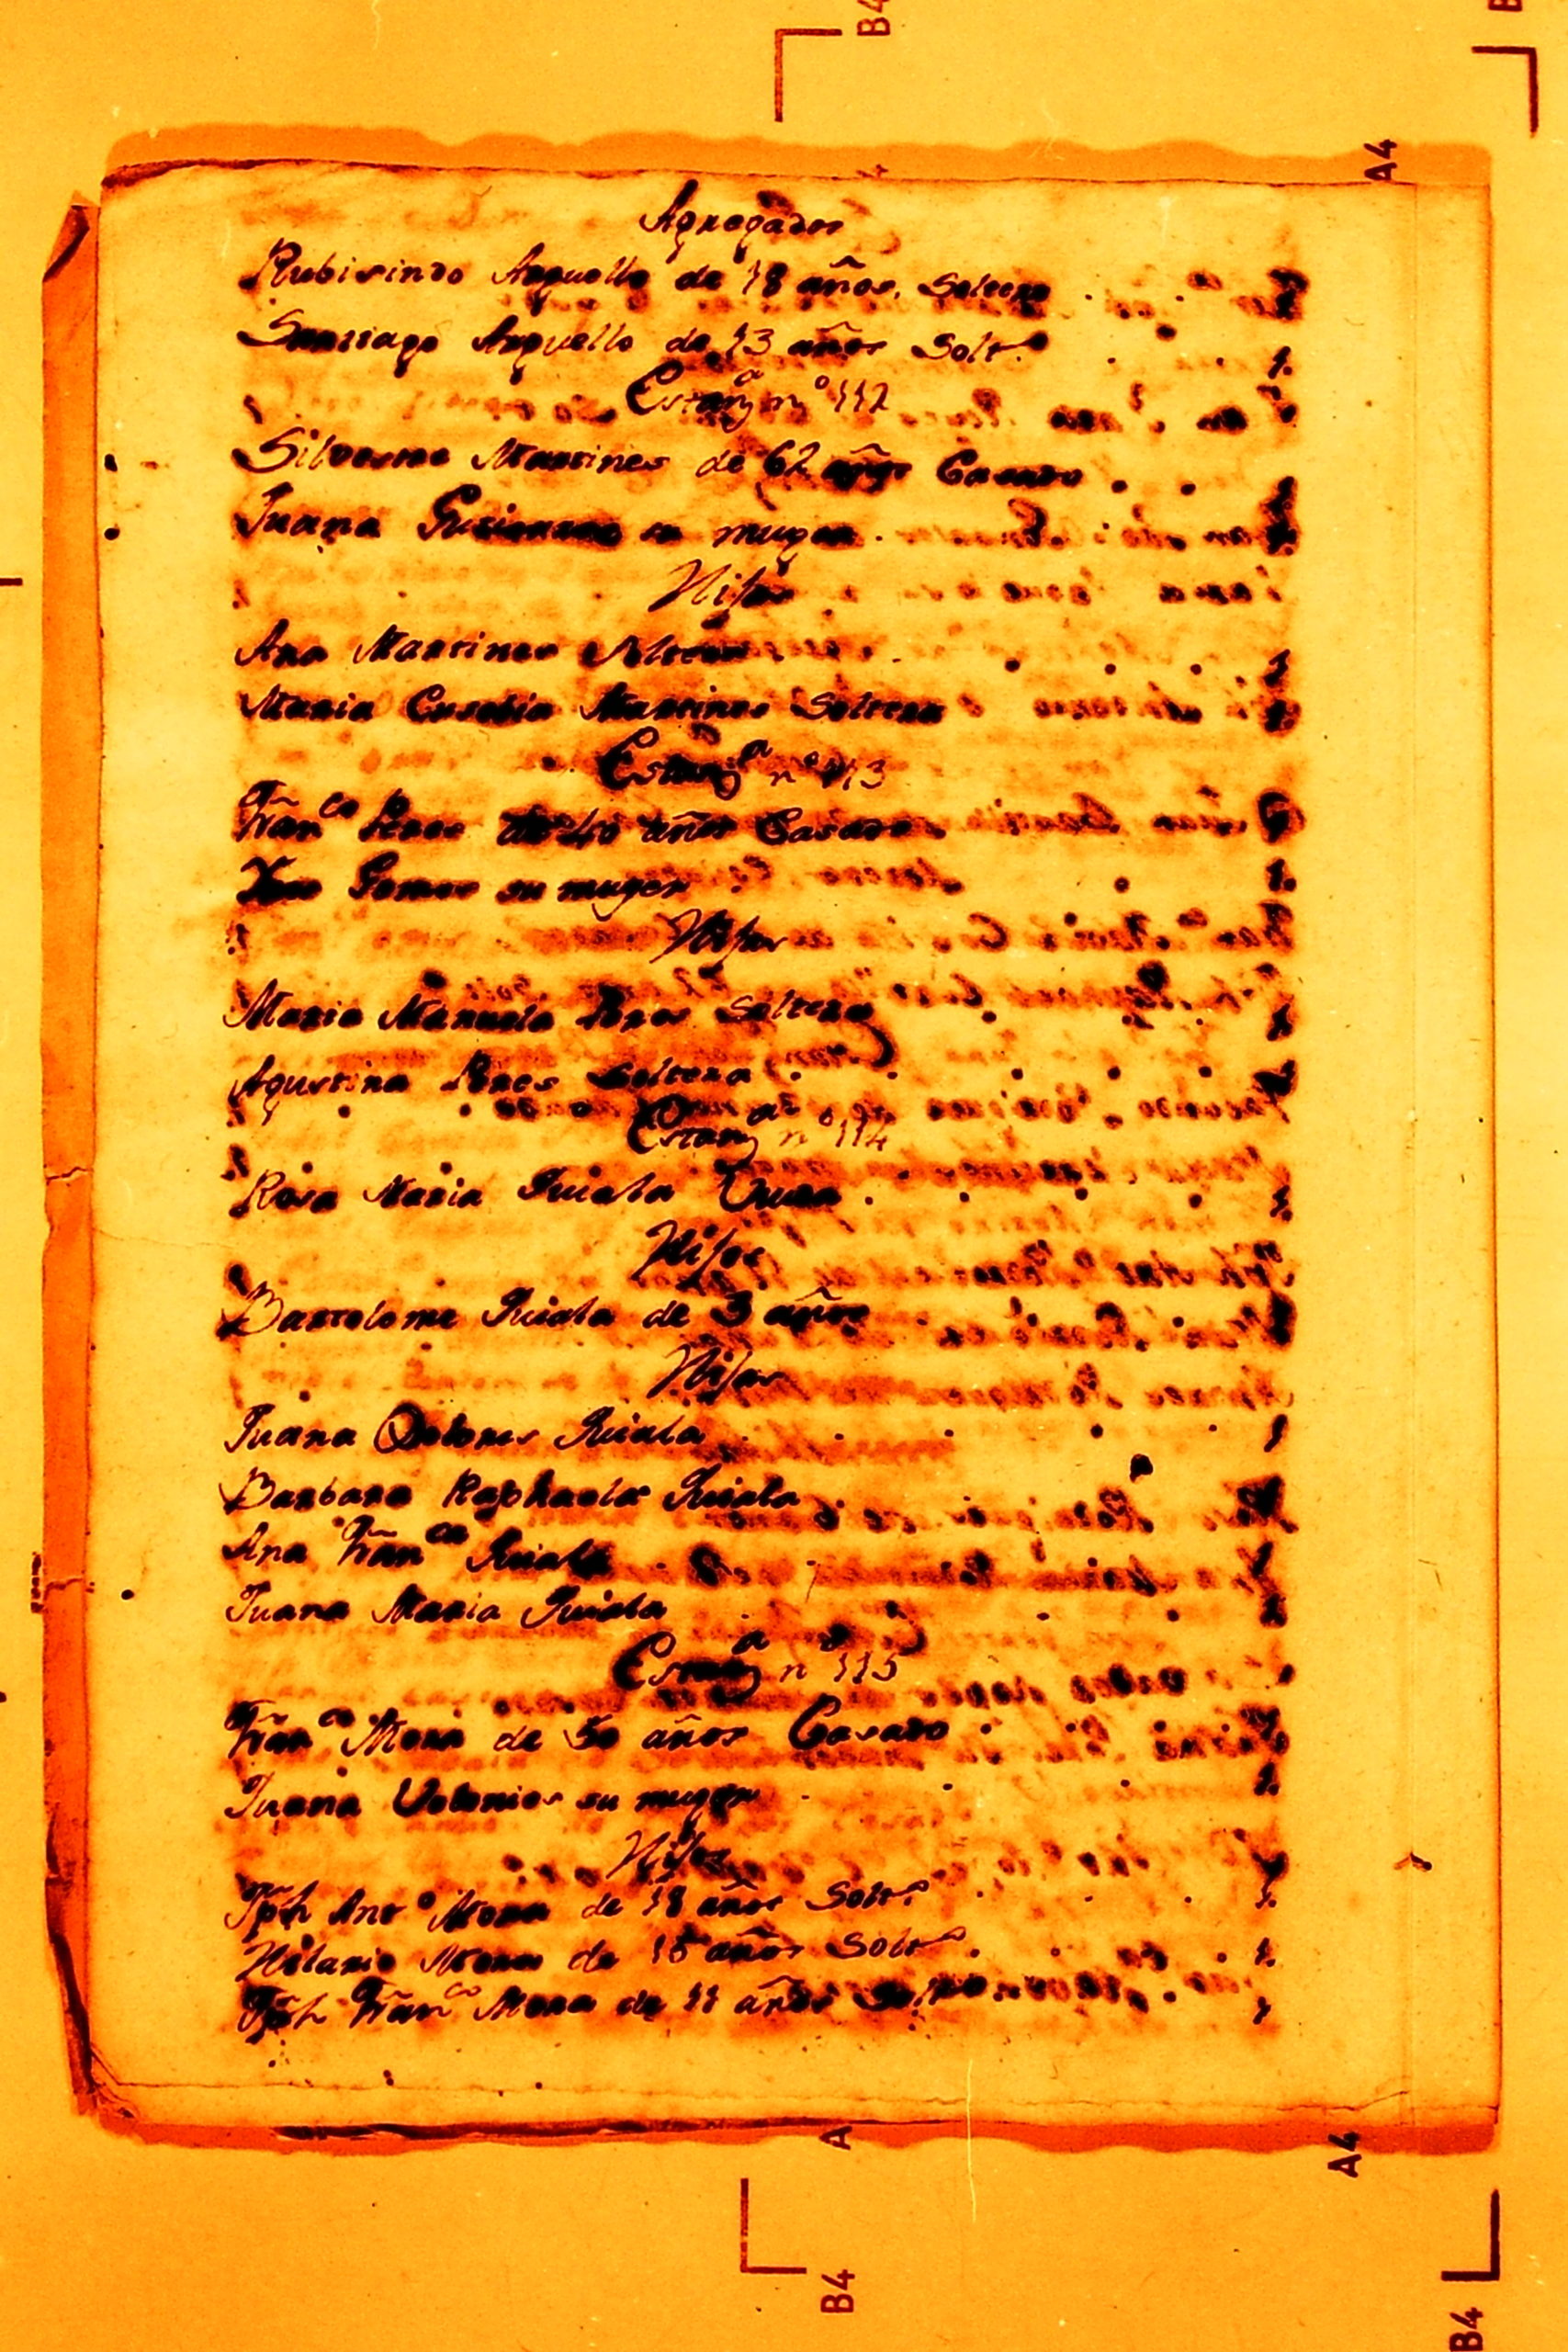 Agregados
Rubisindo Arguello de 18 años, Soltero 1
Santiago Arguello de 13 años Solt.º 1.
Estanz.ª n.º 112
Silvestre Martines de 62 años Casado 1
Juana su muger 1
Hijas
Ana Martines Soltera 1
Maria Eusebia Martines Soltera 1
Estanz.ª n.º 113
Fran.co Peres de 40 años Casado 1
Gomes su muger 1
Hijas
Maria Manuela Peres Soltera 1
Agustina Peres Soltera 1
Estanz.ª n.º 114
Rosa Maria Viuda 1
Hijos
Bartolome de 3 años 1
Hijas
Juana Dolores 1
Barbara Raphaela 1
Ana Fran.ca 1
Juana Maria 1
Estanz.ª n.º 115
Fran.co Mora de 50 años Casado 1
Juana su muger 1.
Hijos
Jph Ant.º Mora de 18 años Solt.º 1.
Hilario Mora de 15 años Solt.º 1.
Jph Fran.co Mora de 11 años 1
B4
A4
A
A4
B4
B4